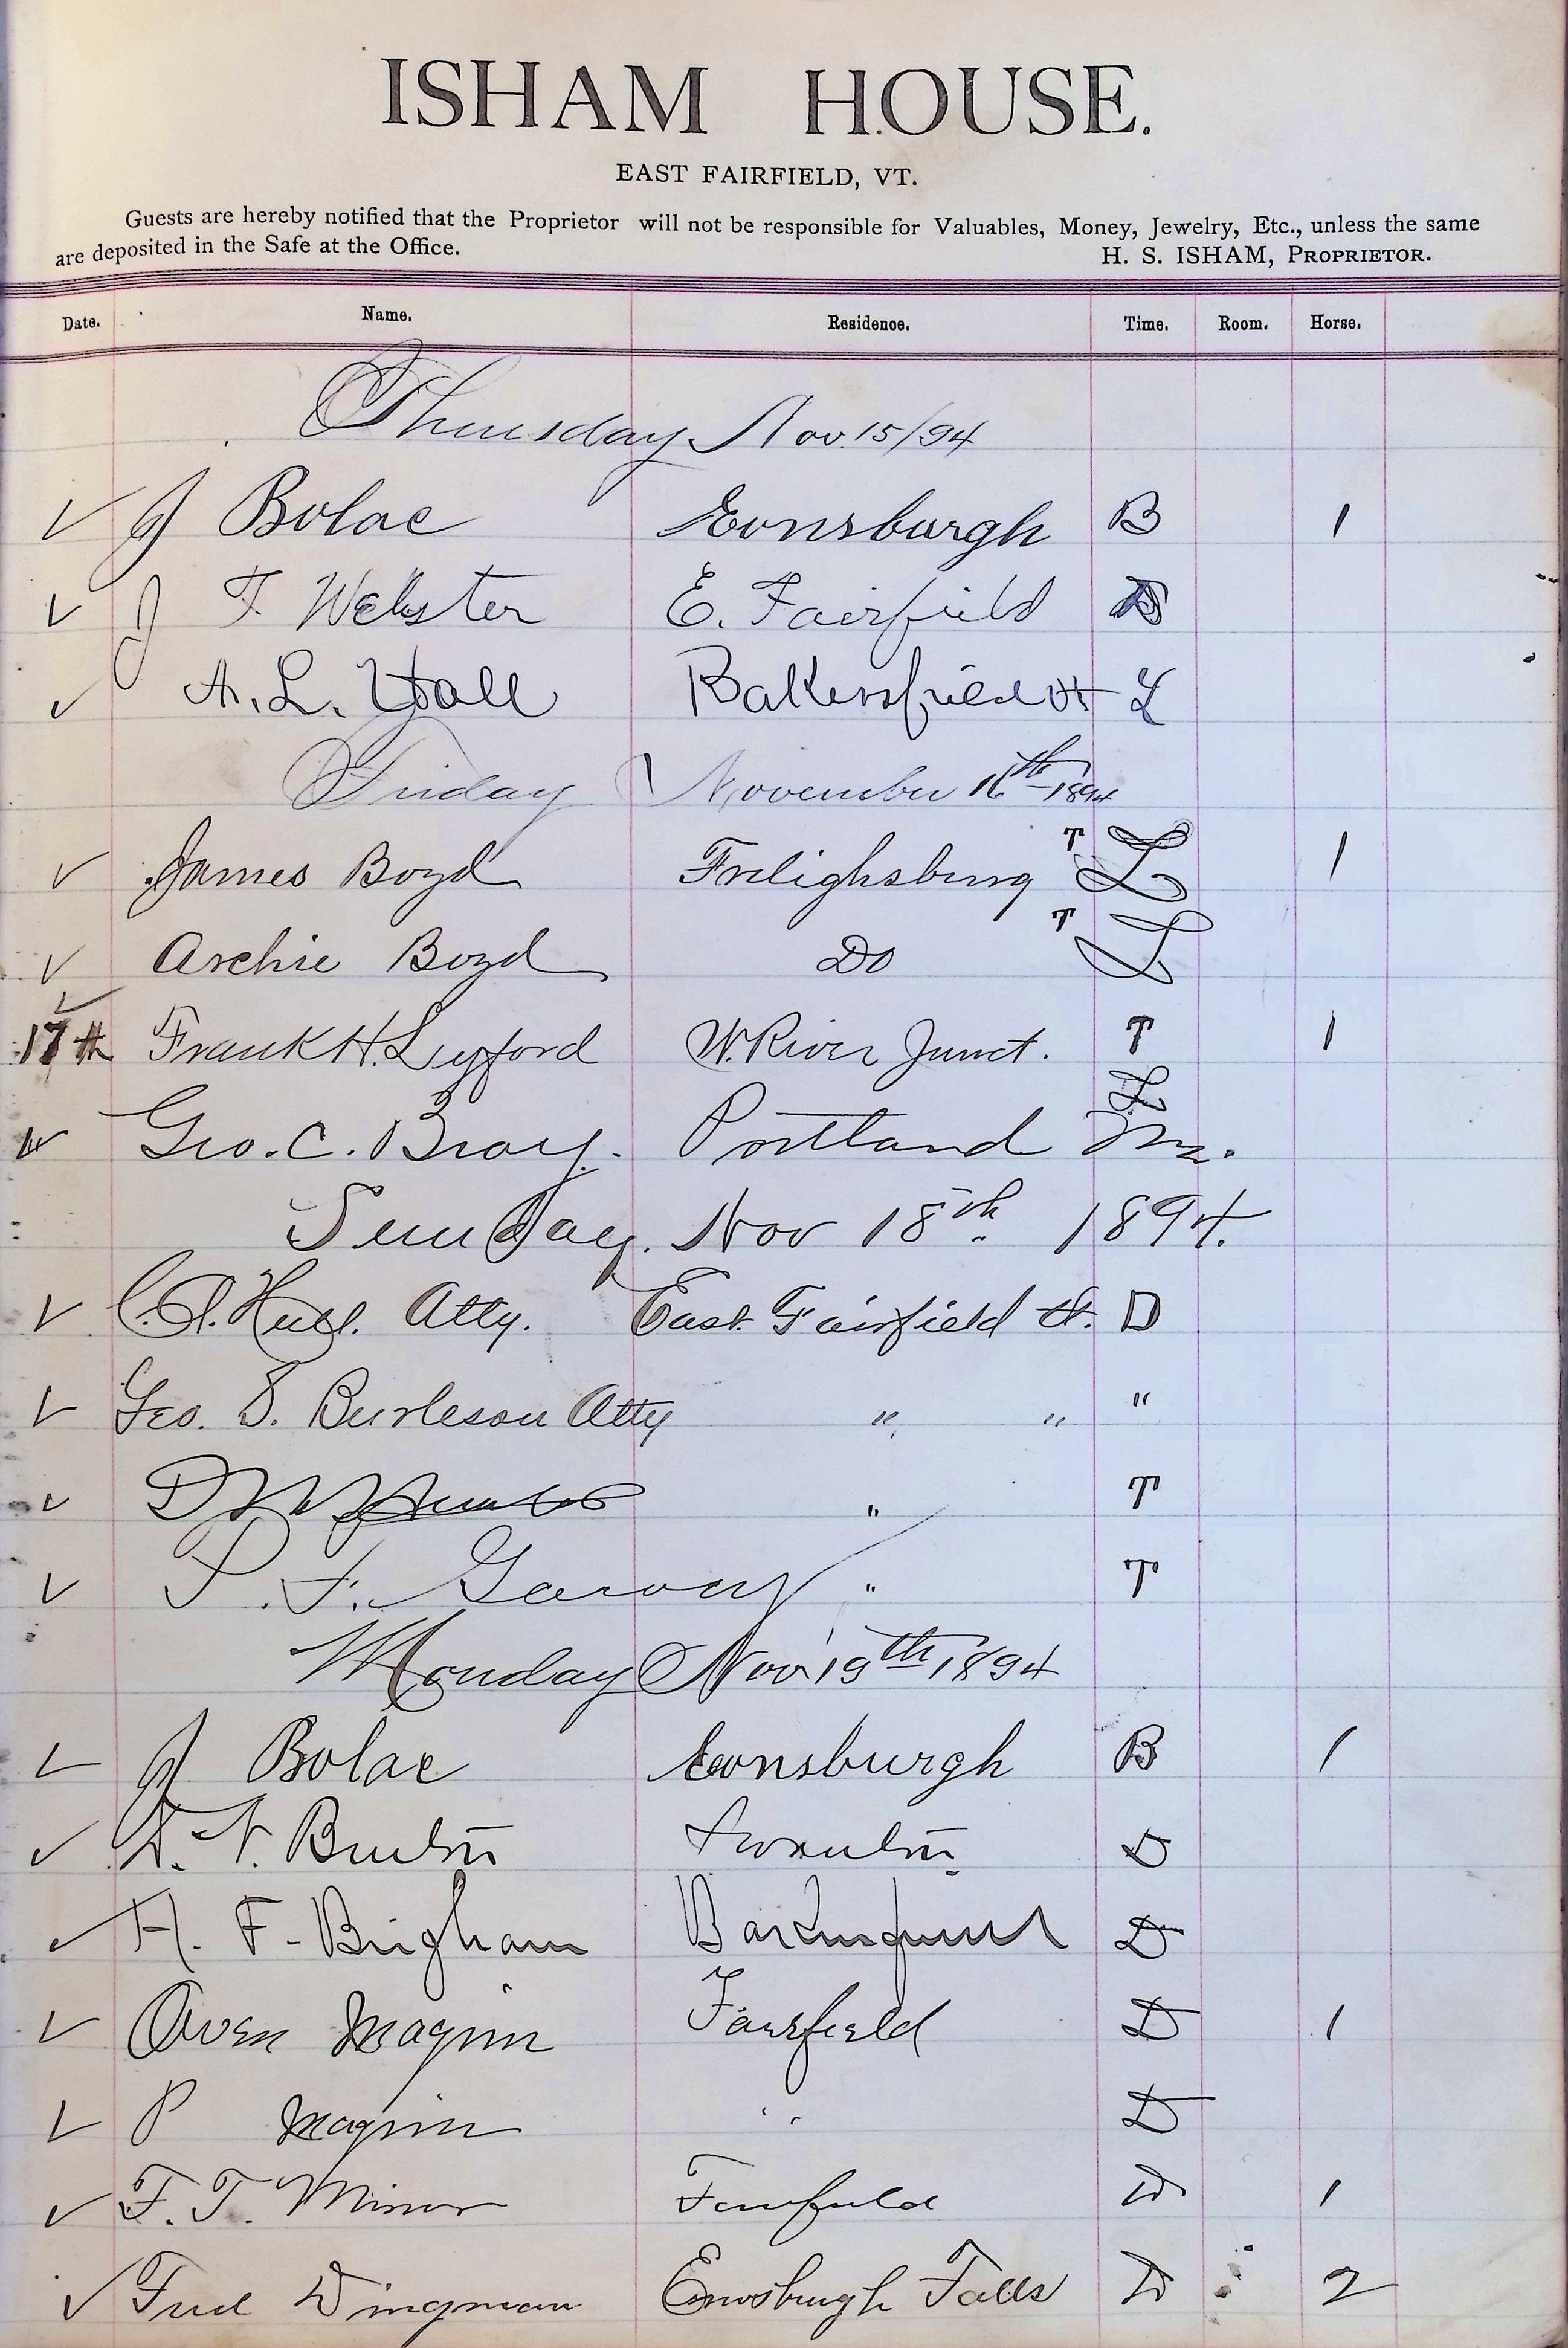 ISHAM HOUSE.
EAST FAIRFIELD, VT.
Guests are hereby notified that the Proprietor will not be responsible for Valuables, Money, Jewelry, Etc., unless the same
are deposited in the Safe at the Office. H. S. ISHAM, PROPRIETOR.
Date. Name. Residence. Time. Room. Horse.
Thursday Nov. 15/94
J Bolac Eonsburgh B 1
J F Webster E. Fairfield
A. L. Hall Bakersfield Vt L
Friday November 16th 1894
James Boyd Frelighsburg T L 1
Archie Boyd Do T L
17th Frank H. Lyford W. River Junct. T 1
L
Geo. C. Bray. Portland Me.
Sunday. Nov 18th 1894.
C. A. Hull. Atty. East Fairfield Vt. D
Geo. S. Burleson Atty " " "
" T
P. F. Garvey " T
Monday Nov 19th 1894
J Bolac Eonsburgh B 1
Swanton D
H. F. Brigham D
Owen Maginn Fairfield D 1
P Maginn " D
F. T. Minor Fairfield D 1
Fred Wingman Enosburgh Falls D 2